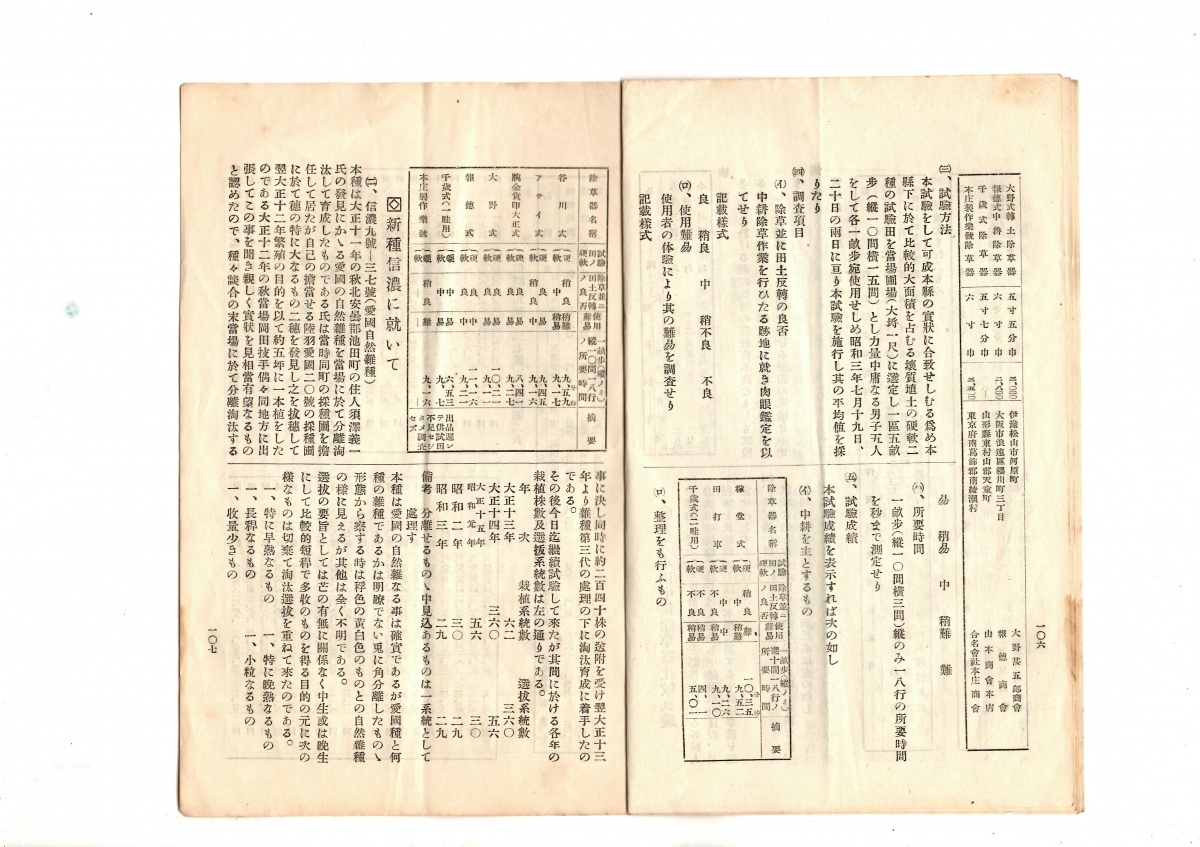 大野式轉土除草器 五寸五分巾 伊豫松山市河原町 大野甚五郎商會
報德式中耕除草器 六寸巾 大阪市浪速區櫻川町三丁目 報德商會
千歲式除草器 五寸七分巾 山形縣東村山郡天童町 山本商會本店
本庄製作樂號除草器 六寸巾 東京府南葛飾郡南綾瀨村 合名會社本庄商會
一〇六
㈢、試驗方法
本試驗をして可成本縣の實狀に合致せしむる爲め本
縣下に於て比較的大面積を占むる壤質埴土の硬軟二
種の試驗田を當場圃場(大埓一尺)に選定し一區五畝
步(縱一〇間橫一五間)とし力量中庸なる男子五人
をして各一畝步宛使用せしめ昭和三年七月十九日、
二十日の兩日に亘り本試驗を施行し其の平均値を採
りたり
㈣、調查項目
㈠、除草並に田土反轉の良否
中耕除草作業を行ひたる跡地に就き肉眼鑑定を以
てせり
記載樣式
良 稍良 中 稍不良 不良
㈡、使用難易
使用者の体驗により其の難易を調查せり
記載樣式
易 稍易 中 稍難 難
㈥、所要時間
一畝步(縱一〇間橫三間)縱のみ一八行の所要時間
を秒まで測定せり
㈤、試驗成績
本試驗成績を表示すれば次の如し
㈠、中耕を主とするもの
除草器名稱 試驗田ノ硬軟 除草並ニ田土反轉ノ良否 使用難易 一畝步(縱ノミ)縱十間一八行ノ所要時間 摘要
綠堂式 硬 稍良 難 一〇、三五
軟 中 稍難 九、五二
田打車 硬 中 中 九、二六
軟 不良 稍易 九、一〇
千歲式(二畦用) 硬 不良 稍易 四、一一
軟 不良 稍易 五、〇一
ロ、整理をも行ふもの
除草器名稱 試驗田ノ硬軟 除草並ニ田土反轉ノ良否 使用難易 一畝步(縱ノミ)縱一〇間一八行ノ所要時間 摘要
谷川式 硬 稍良 稍難 九、五九
軟 中 稍易 九、一七
アサイ式 硬 稍良 中 九、四五
軟 良 易 九、一六
腕金賞印大正式 硬 良 易 八、四一
軟 良 易 九、二七
大野式 硬 良 易 一〇、二一
軟 良 易 九、一一
報德式 硬 良 中 一、一六
軟 中 中 九、二〇
千歲式(二畦用) 硬 中 易 六、五三
軟 中 易 九、一七
本庄製作樂號 硬 稍良 難 九、一六
軟 — — — 出品遲レテ供試田不足セシタメ調查セズ
◇新種信濃に就いて
㈡、信濃九號—三七號(愛國自然雜種)
本種は大正十一年の秋北安曇郡池田町の住人須澤義一
氏の發見にかゝる愛國の自然雜種を當場に於て分離淘
汰して育成したものである氏は當時同町の採種圃を擔
任して居たが自己の擔當せる陸羽愛國二〇號の採種圃
に於て穗の特に大なるもの二穗を發見し之を拔穗して
翌大正十二年繁殖の目的を以て約五坪に一本植をした
のである大正十二年の秋當場岡田技手偶々同地方に出
張してこの事を聞き親しく實狀を見相當有望なるもの
と認めたので、種々談合の末當場に於て分離淘汰する
事に決し同時に約二百四十株の送附を受け翌大正十三
年より雜種第三代の處理の下に淘汰育成に着手したの
である。
その後今日迄繼續試驗して來たが其間に於ける各年の
栽植株數及選拔系統數は左の通りである。
年次 栽植系統數 選拔系統數
大正十三年 三六〇
大正十四年 六二 五六
大正十五年 昭和元年 三六〇 三〇
昭和二年 五六 二九
昭和三年 三〇 二九
備考 分離せるものゝ中見込あるものは一系統として
處理す
本種は愛國の自然雜なる事は確實であるが愛國種と何
種の雜種であるかは明瞭でない兎に角分離したものゝ
形態から察する時は稃色の黃白色のものとの自然雜種
の樣に見えるが其他は全く不明である。
選拔の要旨としては芒の有無に關係なく中生或は晚生
にして比較的短稈で多收のものを得る目的の元に次の
樣なものは切棄て淘汰選拔を重ねて來たのである。
一、特に早熟なるもの 一、特に晚熟なるもの
一、長稈なるもの 一、小粒なるもの
一、收量少きもの
一〇七